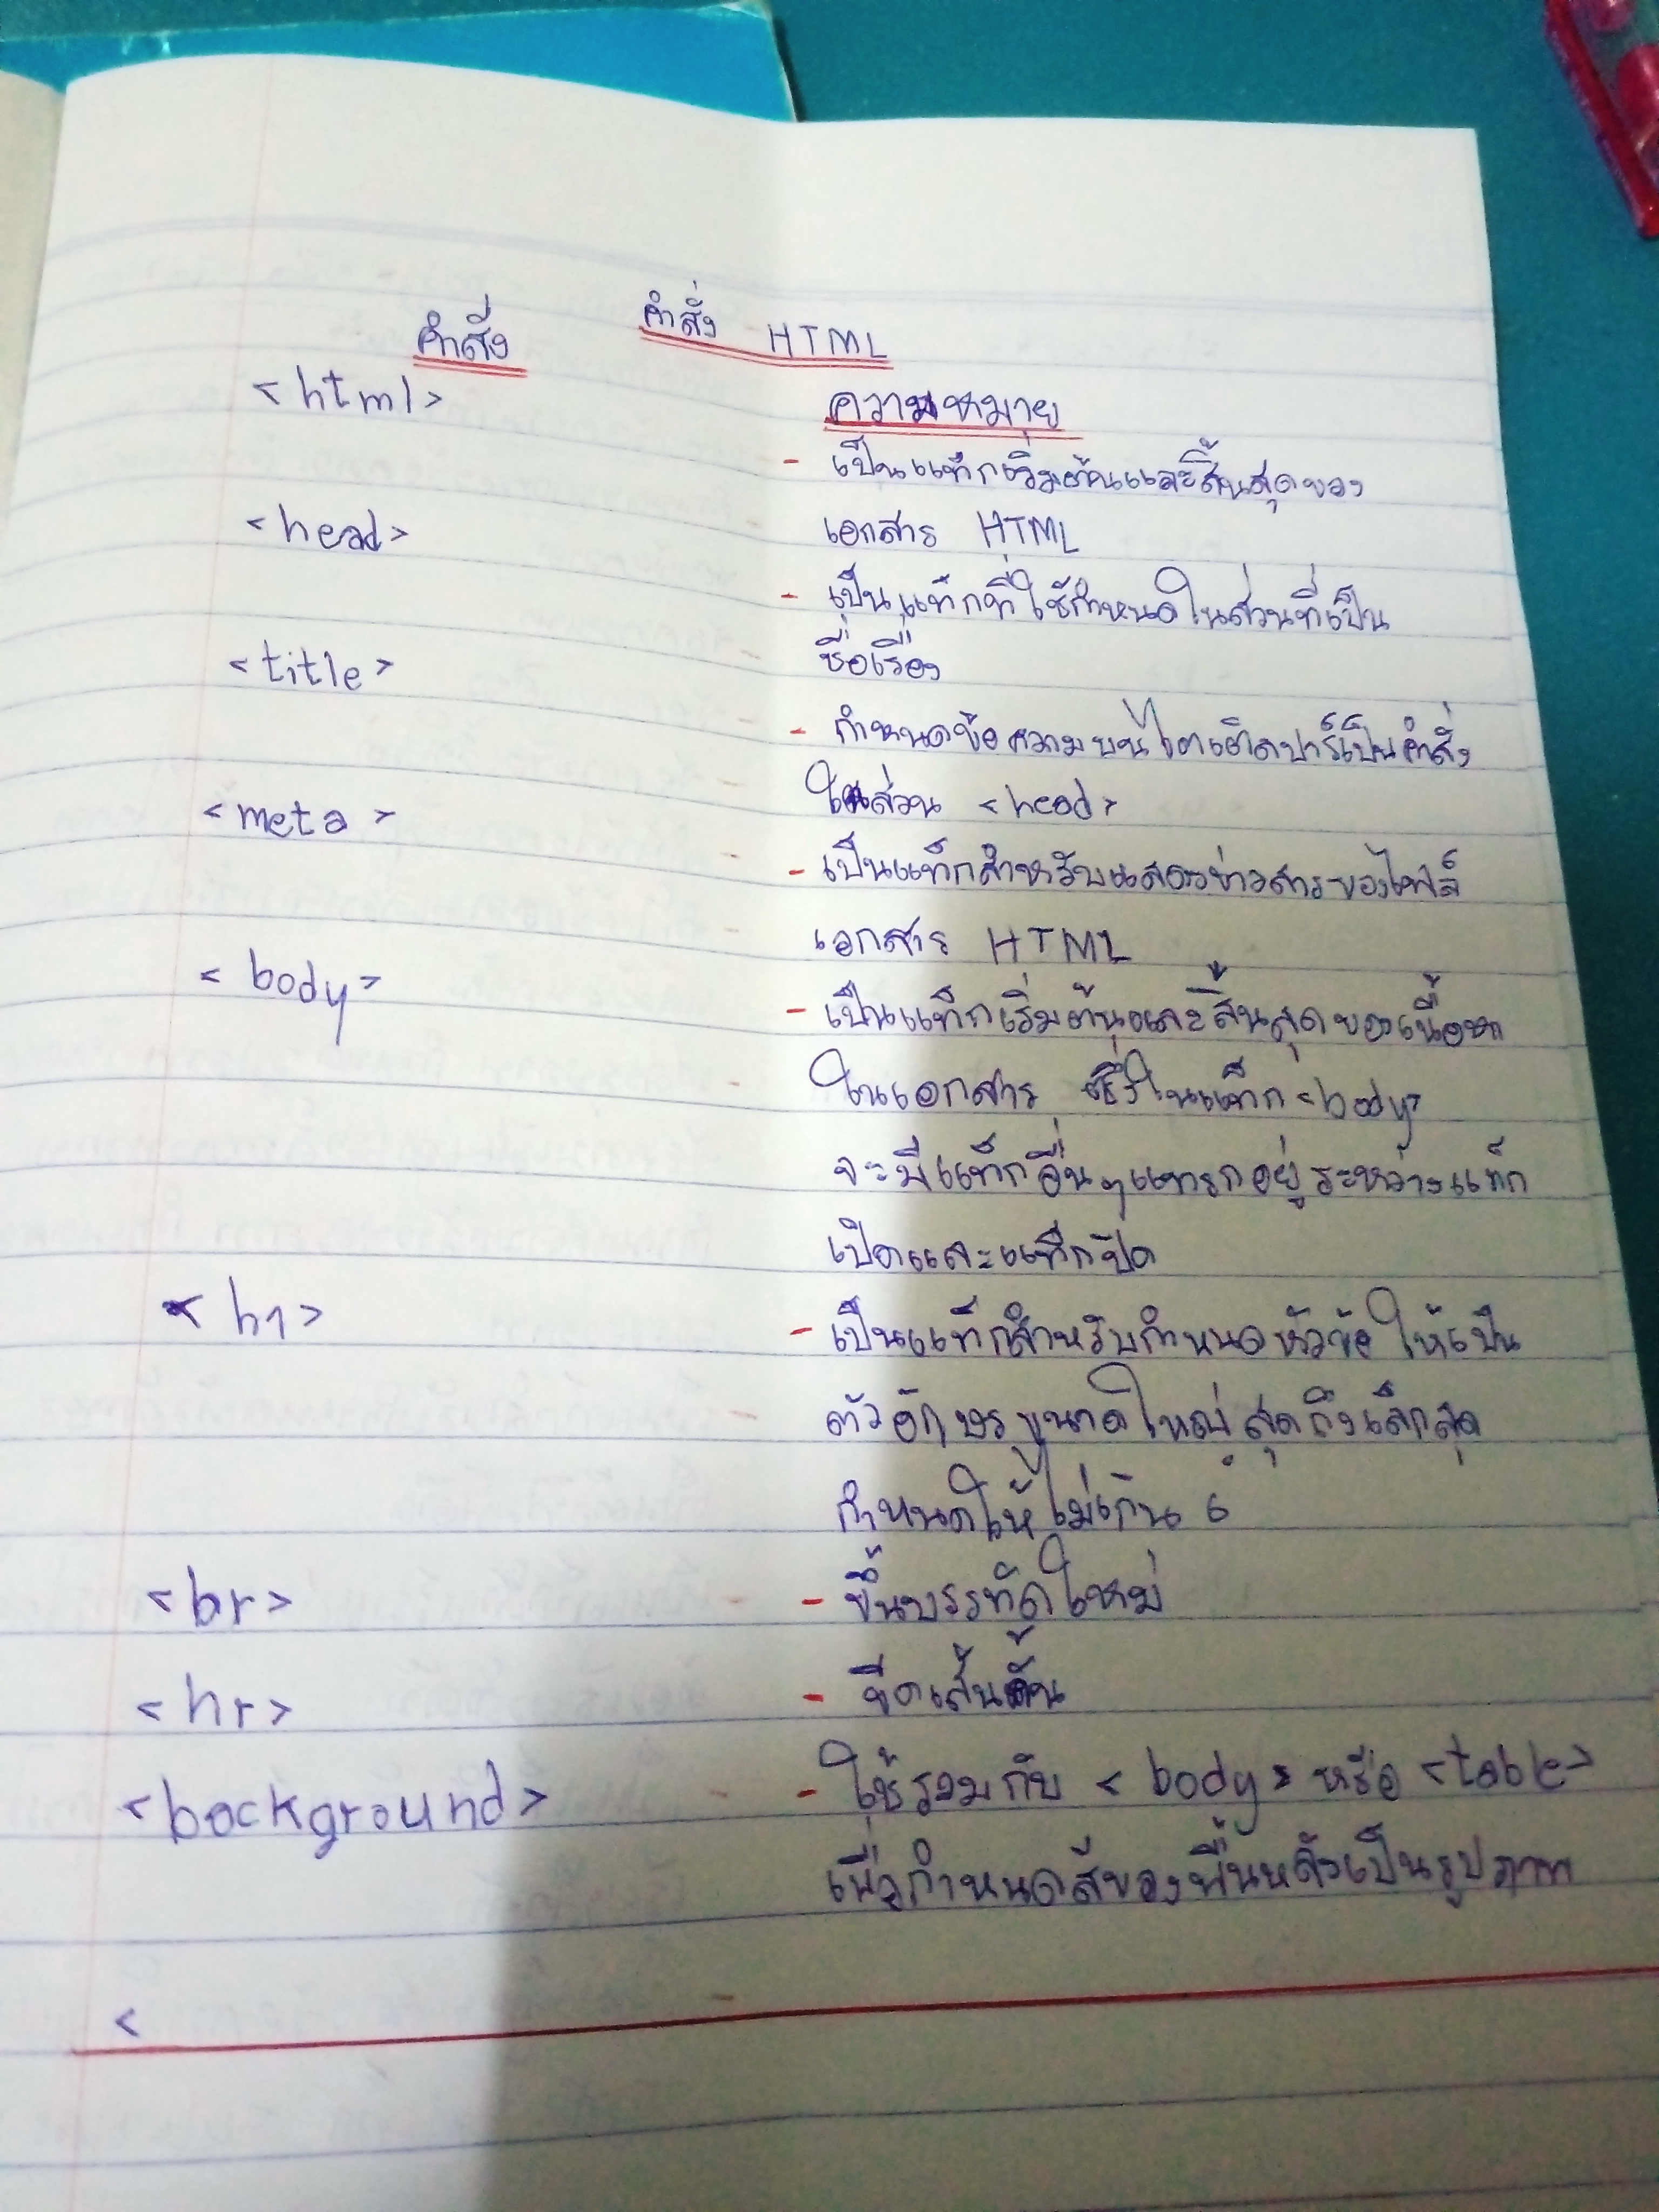 คำสั่ง HTML
คำสั่ง
<html>
ความหมาย
- เป็นแท็กเริ่มต้นและสิ้นสุดของ
<head>
เอกสาร HTML
- เป็นแท็กที่ใช้กำหนดในส่วนที่เป็น
<title>
ชื่อเรื่อง
- กำหนดข้อความบนไตเติลบาร์เป็นคำสั่ง
<meta>
ในส่วน <head>
- เป็นแท็กสำหรับแสดงข่าวสารของไฟล์
เอกสาร HTML
<body>
- เป็นแท็กเริ่มต้นและสิ้นสุดของเนื้อหา
ในเอกสาร ซึ่งในแท็ก <body>
จะมีแท็กอื่นๆแทรกอยู่ระหว่างแท็ก
เปิดและแท็กปิด
<h1>
- เป็นแท็กสำหรับกำหนดหัวข้อให้เป็น
ตัวอักษรขนาดใหญ่สุดถึงเล็กสุด
กำหนดให้ไม่เกิน 6
<br>
- ขึ้นบรรทัดใหม่
<hr>
- ขีดเส้นคั่น
<background>
- ใช้รวมกับ <body> หรือ <table>
เพื่อกำหนดสีของพื้นหลังเป็นรูปภาพ
<